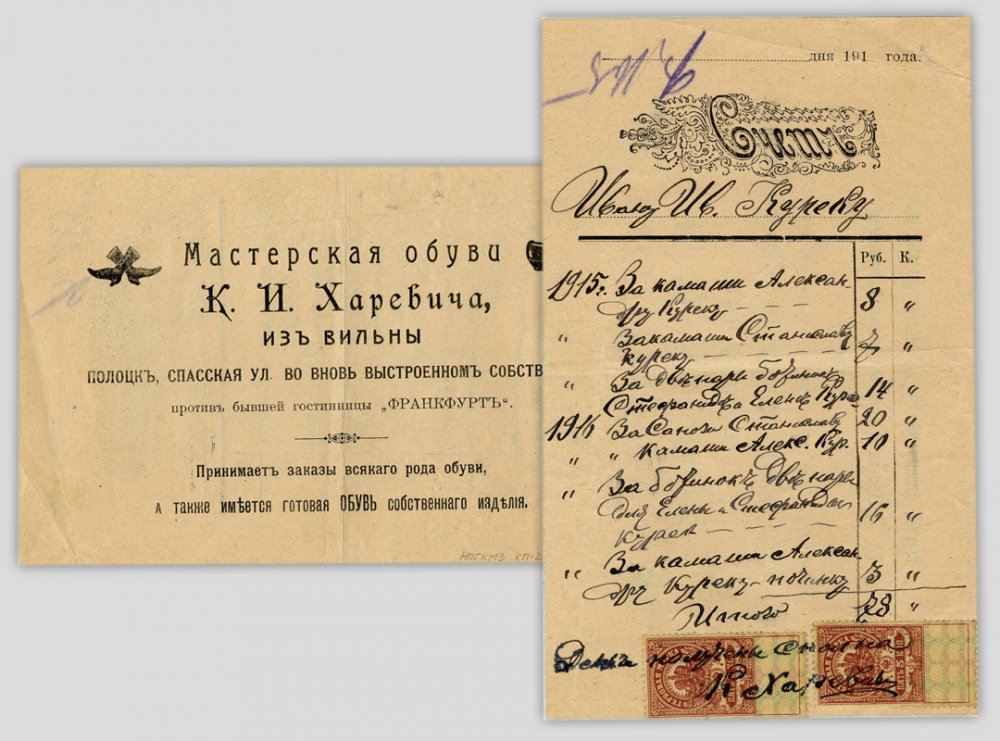 Мастерская обуви
К. И. Харевича,
ИЗЪ ВИЛЬНЫ
ПОЛОЦКЪ, СПАССКАЯ УЛ. ВО ВНОВЬ ВЫСТРОЕННОМЪ СОБСТВ
противъ бывшей гостинницы „ФРАНКФУРТЪ“.
Принимаетъ заказы всякаго рода обуви,
А также имѣется готовая ОБУВЬ собственнаго издѣлія.
НПГКМЗ КП-2
дня 191 года.
Счетъ
Ивану Ив. Куреку
Руб. К.
1915г. За камаши Алексан-
дру Куреку - - - 8 "
" За камаши Станиславу
Куреку - - - 7 "
" За двѣ пары ботинокъ 14 "
и Еленѣ Кур
1916 За Сапоги Станиславу 20 "
" " Камаши Алекс. Кур. 10 "
" За ботинокъ двѣ пары
для Елены и 16 "
" За камаши Алексан-
дру Куреку починку 3 "
Итого 78 "
Деньги получены сполна
К Харевичъ